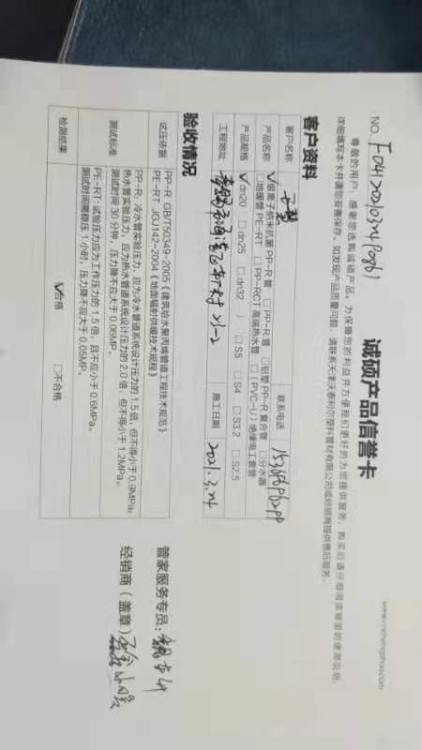 诚硕产品信誉卡
www.cnchengshuo.com
尊敬的用户,感谢您选购诚硕产品。为保障您的利益并方便我们更好的为您提供服务,购买后请仔细阅读背面的使用说明,
详细填写本卡并请您妥善保存。如发现产品质量问题,请联系天津沃泰利尔塑料管材有限公司或经销商提供售后服务。
客户资料
客户名称 联系电话
产品名称 ☑银离子纳米抗菌PP-R管 □PP-R管 □铝塑PP-R复合管 □分水器
□地暖管PE-RT □PP-RCT高端热水管 □(PVC-U)绝缘电工套管
产品规格 ☑dn20 □dn25 □dn32 □S5 □S4 □S3.2 □S2.5
工程地址 施工日期 2021.3.24
验收情况
试压依据 PP-R GB/T50349-2005《建筑给水聚丙烯管道工程技术规范》
PE-RT JGJ142-2004《地面辐射供暖技术规程》
测试标准 PP-R:冷水管实验压力,应为冷水管道系统设计压力的1.5倍,但不得小于0.9MPa;
热水管实验压力,应为热水管道系统设计压力的2.0倍,但不得小于1.2MPa。
测试时间30分钟,压力降不应大于0.06MP。
PE-RT:试验压力应为工作压力的1.5倍,且不应小于0.6MPa。
测试时间需稳压1小时,压力降不应大于0.05MP。
检测结果 ☑合格 □不合格
管家服务专员:
经销商(盖章)